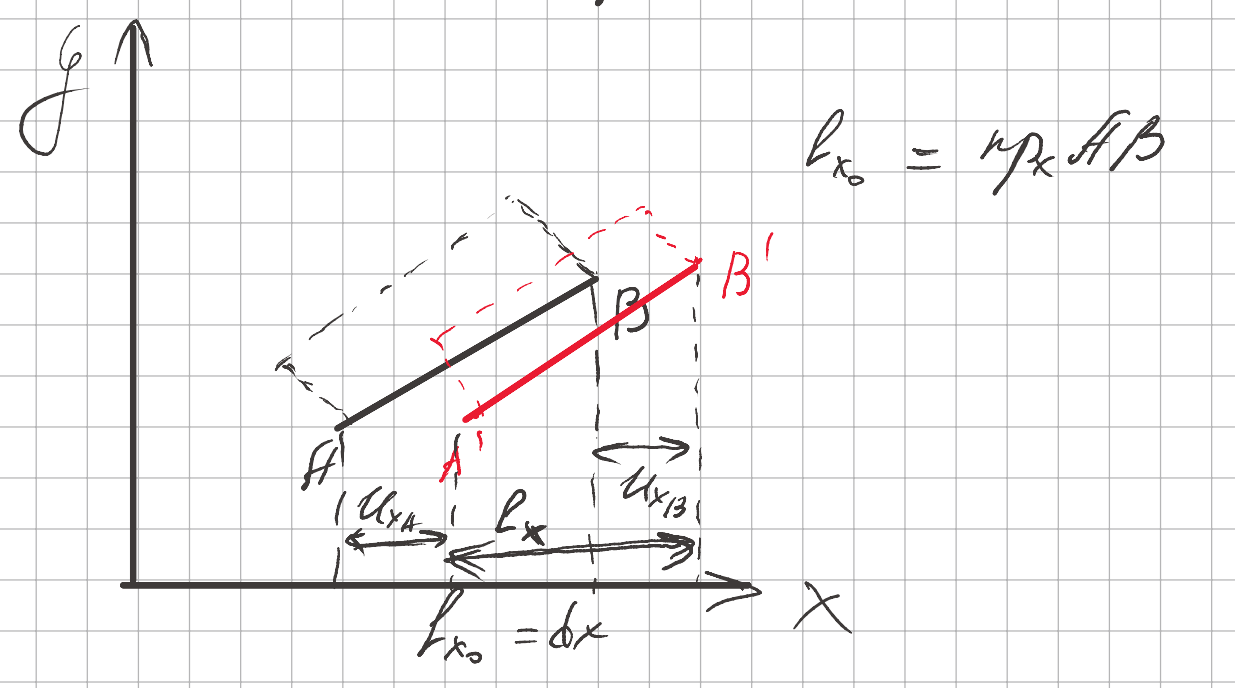 y
l_{x_0} = пр_x AB
B'
B
A
A'
u_{xA}
l_x
u_{xB}
x
l_{x_0} = dx